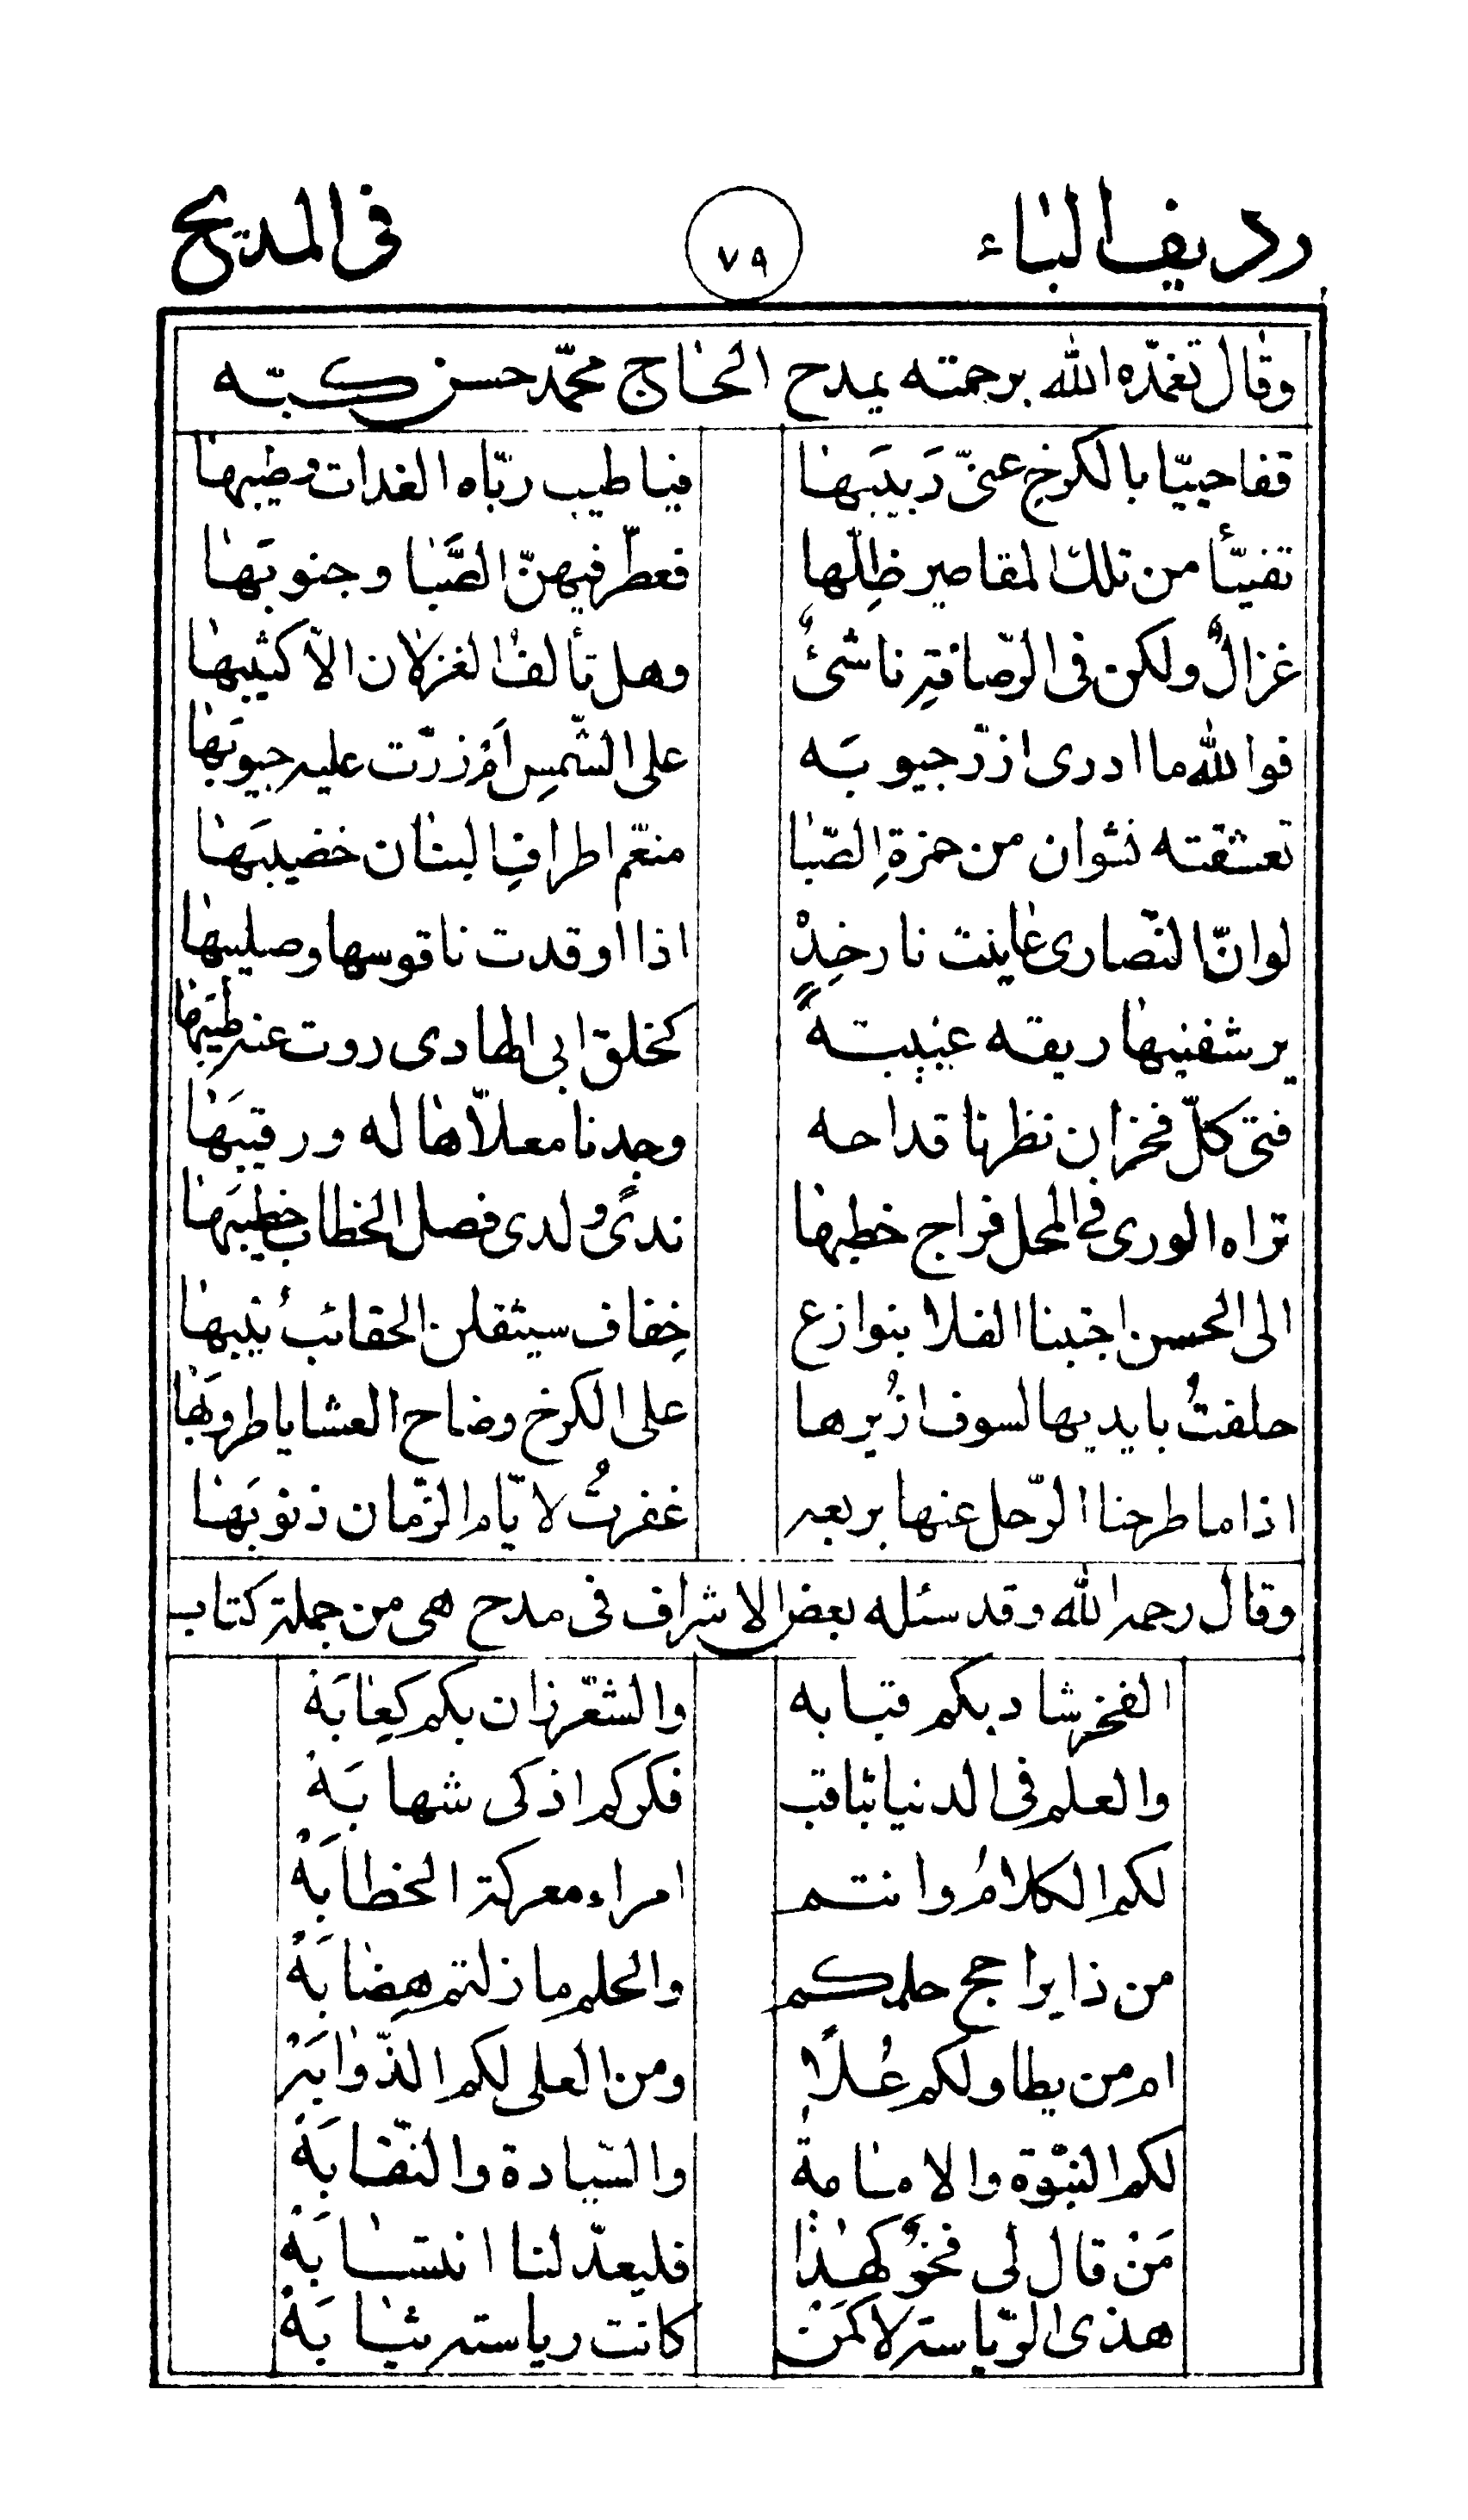 رديف الباء ٧٩ فى المديح
وقال تغمّده الله برحمته يمدح الحاج محمّد حسن كبّه
قفا حييّا بالكرخ عنّى رَبيبَها فيا طيب ريّاه الغدات وطيبها
تفيّأ من تلك المقاصير ظِلّها فعطّر فيهنّ الصَّبا وجنوبَها
غزالٌ ولكن فى الرّصافةِ ناشئٌ وهل تألف الغزلان الاّ كثيبها
فوالله ما ادرى ازرّ جيوبَه على الشّمسِ اَم زرّت عليه جيوبَها
تعشقته نشوان من خمرةِ الصّبا منعّم اطرافِ البنان خضيبَها
لو انّ النّصارى عاينت نار خدِّهِ اذا اوقدت ناقوسها وصليبها
يرشفنيها ريقه عنبيةً كخلق ابى الهادى روت عنه طيبَها
فتى كلّ فخر ان نظرنا قداحه وجدنا معلاّها له ورقيبَها
تراه الورى فى المحل فراج خطبها ندىً ولدى فصل الخطاب خطيبَها
الى الحسن اجتبنا الفلا بنوازع خِفاف سيثقلن الحقائب نيبها
حلفتُ بايديها لسوف ازُيرها على الكرخ وضاح العشايا طروبَها
اذا ما طرحنا الرّحل عنها بربعه غفرتُ لايّام الزّمان ذنوبَها
وقال رحمه الله وقد سئله بعض الاشراف فى مدح هى من جملة كتاب
الفخر شاد بكم قبابه والشعّر زان بكم كَعِابَهْ
والعلم فى الدنيا بثاقب فكركم اذكى شهابَهْ
لكم الكلامُ وانتم امراء معركة الخطابَهْ
من ذا يراجح حلمكم والحلم ما زلتم هِضابَهْ
ام من يطاولكم عُلًا ومن العلى لكم الذّوابَه
لكم النبّوة والامامة والسّيادة والنّقابَهْ
مَنْ قال لى فخرٌ كهذا فليعدّ لنا انتسابَهْ
هذى الرّياسة لا كمَنْ كانت رياسته ثيابَهْ